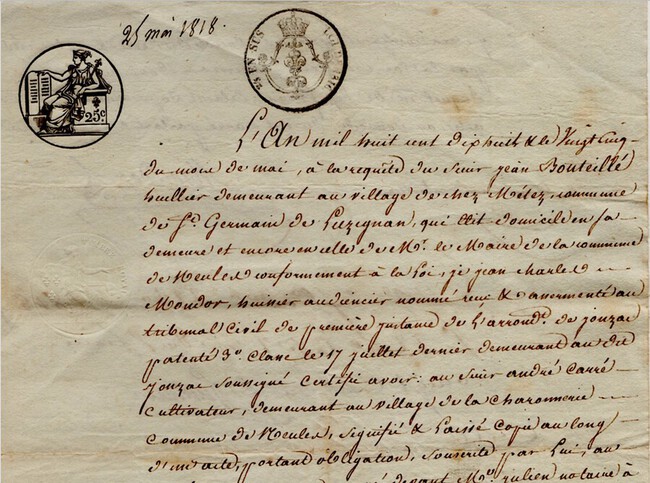 25 mai 1818.
25 EN SUS
25c.
L'An mil huit cent dix huit & le Vingt Cinq
du mois de mai, à la requête du Sieur jean Bouteillé
huillier demeurant au village de chez Métez, commune
de St. Germain de Luzignan, qui Elit domicile en sa
demeure et encore en celle de Mr. le Maire de la commune
de Neulles conformement à la Loi, je jean charles
Mondor, huissier audiencier nommé recu & assermenté au
tribunal Civil de première instance de L'arrondt. de jonzac
patenté 3e. Classe le 17 juillet dernier demeurant au dit
Jonzac soussigné Certifie avoir: au Sieur andré Carré
Cultivateur, demeurant au village de la Charonnerie
Commune de Neulles, signifié & Laissé Copie au long
d'un acte, portant obligation, souscrite par Lui, au
devant Me. julien notaire à